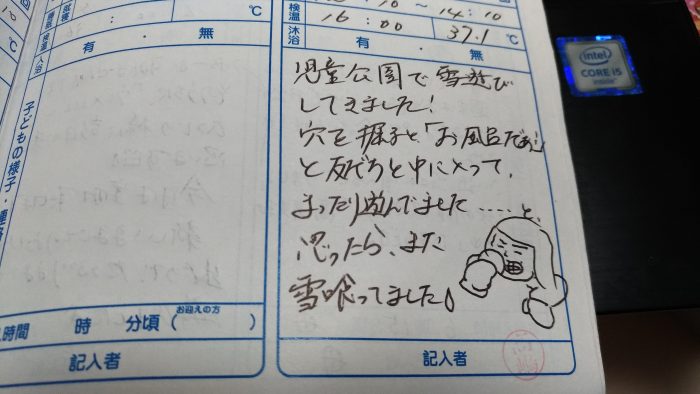 ℃
有 ・ 無
子どもの様子・連絡
時間 時 分頃 (お迎えの方)
記入者
~ 14:10
検温 16:00 37.1 ℃
沐浴 有 ・ 無
児童公園で雪遊び
してきました!
穴を掘ると、「お風呂だぁ」
と友だちと中に入って、
まったり遊んでました……と、
思ったら、また
雪喰ってました♪
記入者
intel
CORE i5
inside